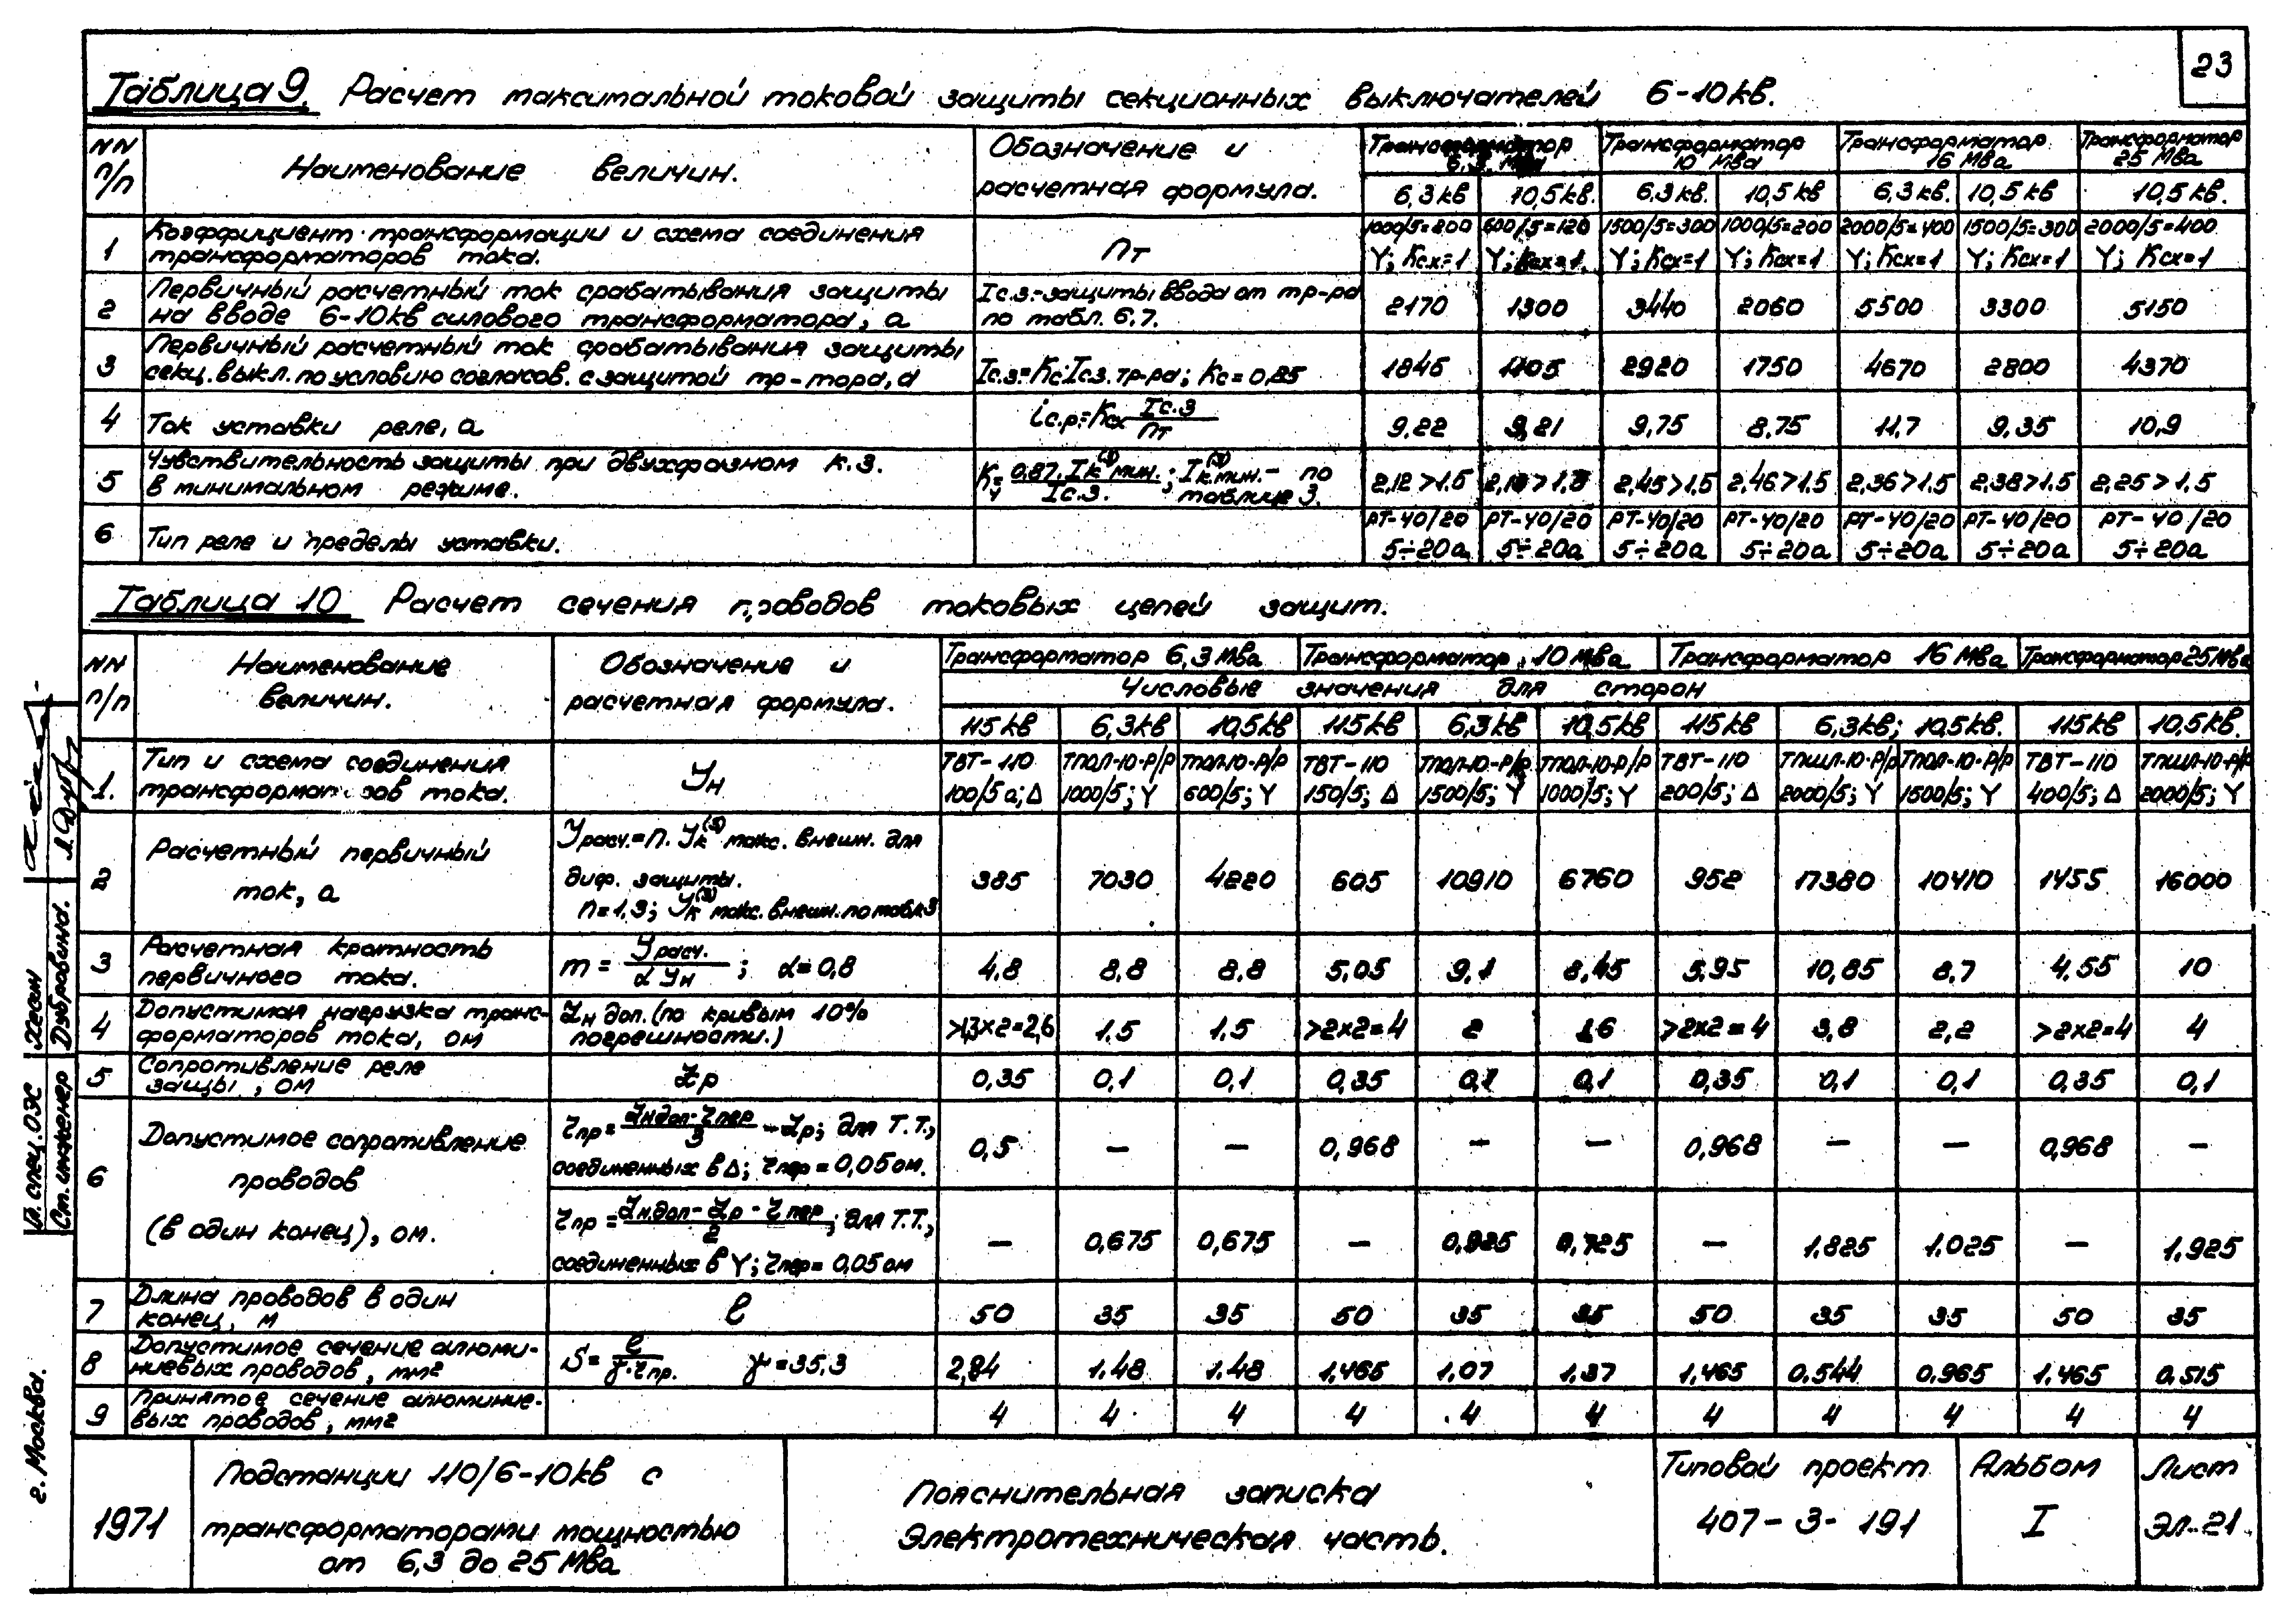 23
Таблица 9. Расчет максимальной токовой защиты секционных выключателей 6-10кв.
NN п/п | Наименование величин. | Обозначение и расчетная формула. | Трансформатор 6,3 Мва | Трансформатор 10 Мва | Трансформатор 16 Мва | Трансформатор 25 Мва
6,3кв | 10,5кв. | 6,3кв. | 10,5кв | 6,3кв. | 10,5кв | 10,5кв.
1 | Коэффициент трансформации и схема соединения трансформаторов тока. | nт | 1000/5=200 Y; Kсх=1 | 600/5=120 Y; Kсх=1. | 1500/5=300 Y; Kсх=1 | 1000/5=200 Y; Kсх=1 | 2000/5=400 Y; Kсх=1 | 1500/5=300 Y; Kсх=1 | 2000/5=400 Y; Kсх=1
2 | Первичный расчетный ток срабатывания защиты на вводе 6-10кв силового трансформатора, а | Iс.з.-защиты ввода от тр-ра по табл. 6,7. | 2170 | 1300 | 3440 | 2060 | 5500 | 3300 | 5150
3 | Первичный расчетный ток срабатывания защиты секц. выкл. по условию согласов. с защитой тр-тора, а | Iс.з.=Kс·Iс.з. тр-ра; Kс=0,85 | 1845 | 1105 | 2920 | 1750 | 4670 | 2800 | 4370
4 | Ток уставки реле, а | iс.р.=Kсх Iс.з/nт | 9,22 | 9,21 | 9,75 | 8,75 | 11,7 | 9,35 | 10,9
5 | Чувствительность защиты при двухфазном к.з. в минимальном режиме. | Kч= 0,87·Iк(3)мин./Iс.з.; Iк(3)мин.- по таблице 3. | 2,12>1.5 | | 2,45>1,5 | 2,46>1.5 | 2,36>1.5 | 2,38>1.5 | 2,25>1,5
6 | Тип реле и пределы уставки. | РТ-40/20 5÷20а | РТ-40/20 5÷20а | РТ-40/20 5÷20а | РТ-40/20 5÷20а | РТ-40/20 5÷20а | РТ-40/20 5÷20а | РТ-40/20 5÷20а
Таблица 10 Расчет сечения проводов токовых цепей защит.
NN п/п | Наименование величин. | Обозначение и расчетная формула. | Трансформатор 6,3 Мва | Трансформатор 10 Мва | Трансформатор 16 Мва | Трансформатор 25 Мва
Числовые значения для сторон
115кв | 6,3кв | 10,5кв | 115кв | 6,3кв | 10,5кв | 115кв | 6,3кв; | 10,5кв. | 115кв | 10,5кв.
1. | Тип и схема соединения трансформаторов тока. | Jн | ТВТ-110 100/5а; Δ | ТПОЛ-10-Р/Р 1000/5; Y | ТПОЛ-10-Р/Р 600/5; Y | ТВТ-110 150/5; Δ | ТПОЛ-10-Р/Р 1500/5; Y | ТПОЛ-10-Р/Р 1000/5; Y | ТВТ-110 200/5; Δ | ТПШЛ-10-Р/Р 2000/5; Y | ТПОЛ-10-Р/Р 1500/5; Y | ТВТ-110 400/5; Δ | ТПШЛ-10-Р/Р 2000/5; Y
2 | Расчетный первичный ток, а | Jрасч.=n·Jк(3) макс. внешн. для диф. защиты. n=1,3; Jк(3) макс. внешн. по табл.3 | 385 | 7030 | 4220 | 605 | 10910 | 6760 | 952 | 17380 | 10410 | 1455 | 16000
3 | Расчетная кратность первичного тока. | m= Jрасч./α Jн; α=0,8 | 4,8 | 8,8 | 8,8 | 5,05 | 9,1 | 8,45 | 5,95 | 10,85 | 8,7 | 4,55 | 10
4 | Допустимая нагрузка трансформаторов тока, ом | Zн доп. (по кривым 10% погрешности.) | >1,3×2=2,6 | 1.5 | 1.5 | >2×2=4 | 2 | 1.6 | >2×2=4 | 3,8 | 2,2 | >2×2=4 | 4
5 | Сопротивление реле защы, ом | Zр | 0,35 | 0,1 | 0,1 | 0,35 | 0,1 | 0,1 | 0,35 | 0,1 | 0,1 | 0,35 | 0,1
6 | Допустимое сопротивление проводов (в один конец), ом. | rпр= Zн.доп-rпер/3 -Zр; для Т.Т., соединенных в Δ; rпер=0,05ом. | 0,5 | – | – | 0,968 | – | – | 0,968 | – | – | 0,968 | –
rпр= Zн.доп-Zр-rпер/2; для Т.Т., соединенных в Y; rпер=0,05ом | – | 0,675 | 0,675 | – | 0,925 | 0,725 | – | 1,825 | 1.025 | – | 1,925
7 | Длина проводов в один конец, м | ℓ | 50 | 35 | 35 | 50 | 35 | 35 | 50 | 35 | 35 | 50 | 35
8 | Допустимое сечение алюминиевых проводов, мм2 | S= ℓ/γ·rпр. γ=35,3 | 2,84 | 1.48 | 1.48 | 1,465 | 1,07 | 1,37 | 1,465 | 0,544 | 0,965 | 1,465 | 0,515
9 | Принятое сечение алюминиевых проводов, мм2 | 4 | 4 | 4 | 4 | 4 | 4 | 4 | 4 | 4 | 4 | 4
Гл. спец. ОЭС Хесин
Ст. инженер Дубровина.
г. Москва.
1971
Подстанции 110/6-10кв с
трансформаторами мощностью
от 6,3 до 25 Мва
Пояснительная записка
Электротехническая часть.
Типовой проект
407-3-191
Альбом
I
Лист
ЭЛ-21